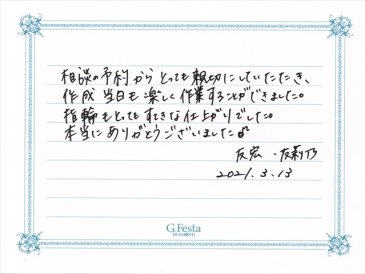 相談の予約からとっても親切にしていただき、
作成当日も楽しく作業することができました。
指輪もとってもすてきな仕上がりでした。
本当にありがとうございました
友宏・友莉乃
2021.3.13
G.Festa